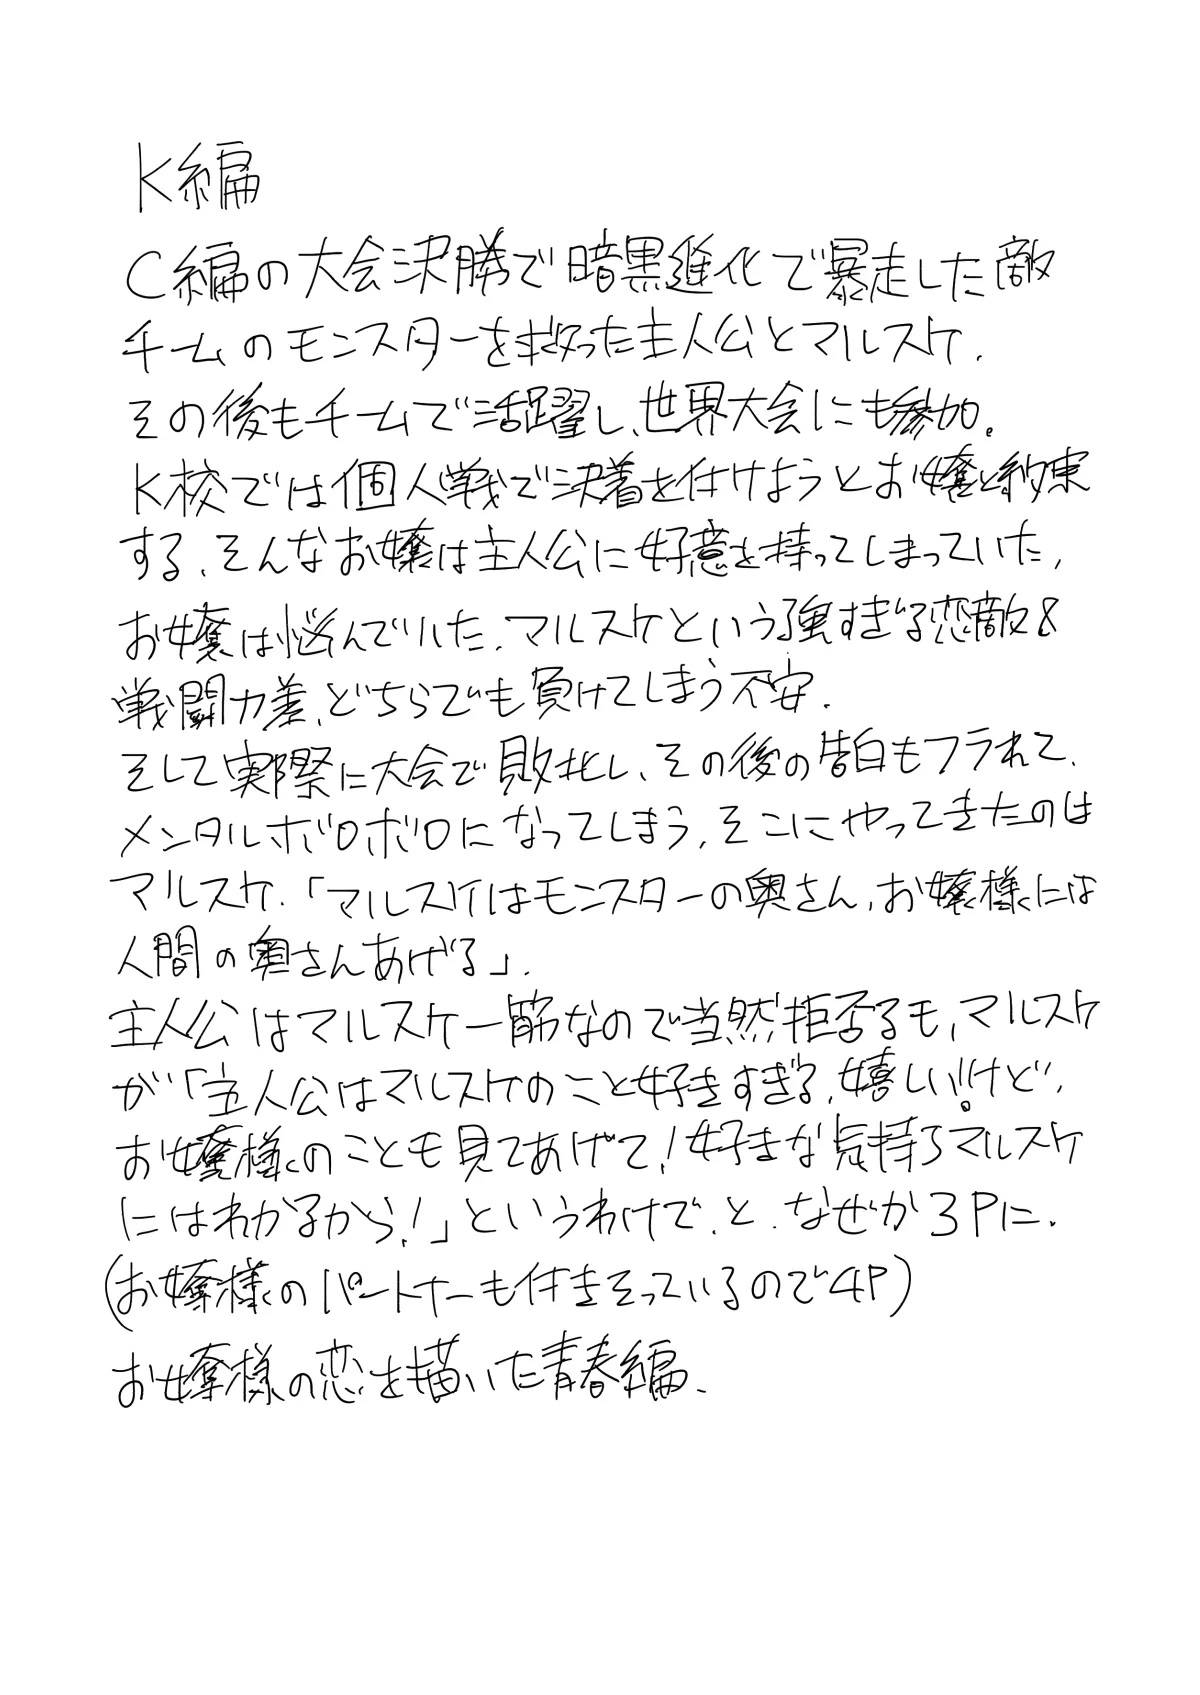 K編
C編の大会決勝で暗黒進化で暴走した敵
チームのモンスターを救った主人公とマルスケ.
その後もチームで活躍し、世界大会にも参加。
K校では個人戦で決着を付けようとお嬢と約束
する、そんなお嬢は主人公に好意を持ってしまっていた,
お嬢は悩んでいた、マルスケという強すぎる恋敵&
戦闘力差、どちらでも負けてしまう不安.
そして実際に大会で敗北し、その後の告白もフラれて、
メンタルボロボロになってしまう、そこにやってきたのは
マルスケ.「マルスケはモンスターの奥さん、お嬢様には
人間の奥さんあげる」.
主人公はマルスケ一筋なので当然拒否るも,マルスケ
が「主人公はマルスケのこと好きすぎる、嬉しい!!けど、
お嬢様のことも見てあげて!好きな気持ちマルスケ
にはわかるから!」というわけで、と、なぜか3Pに.
(お嬢様のパートナーも付きそっているので4P)
お嬢様の恋を描いた青春編、